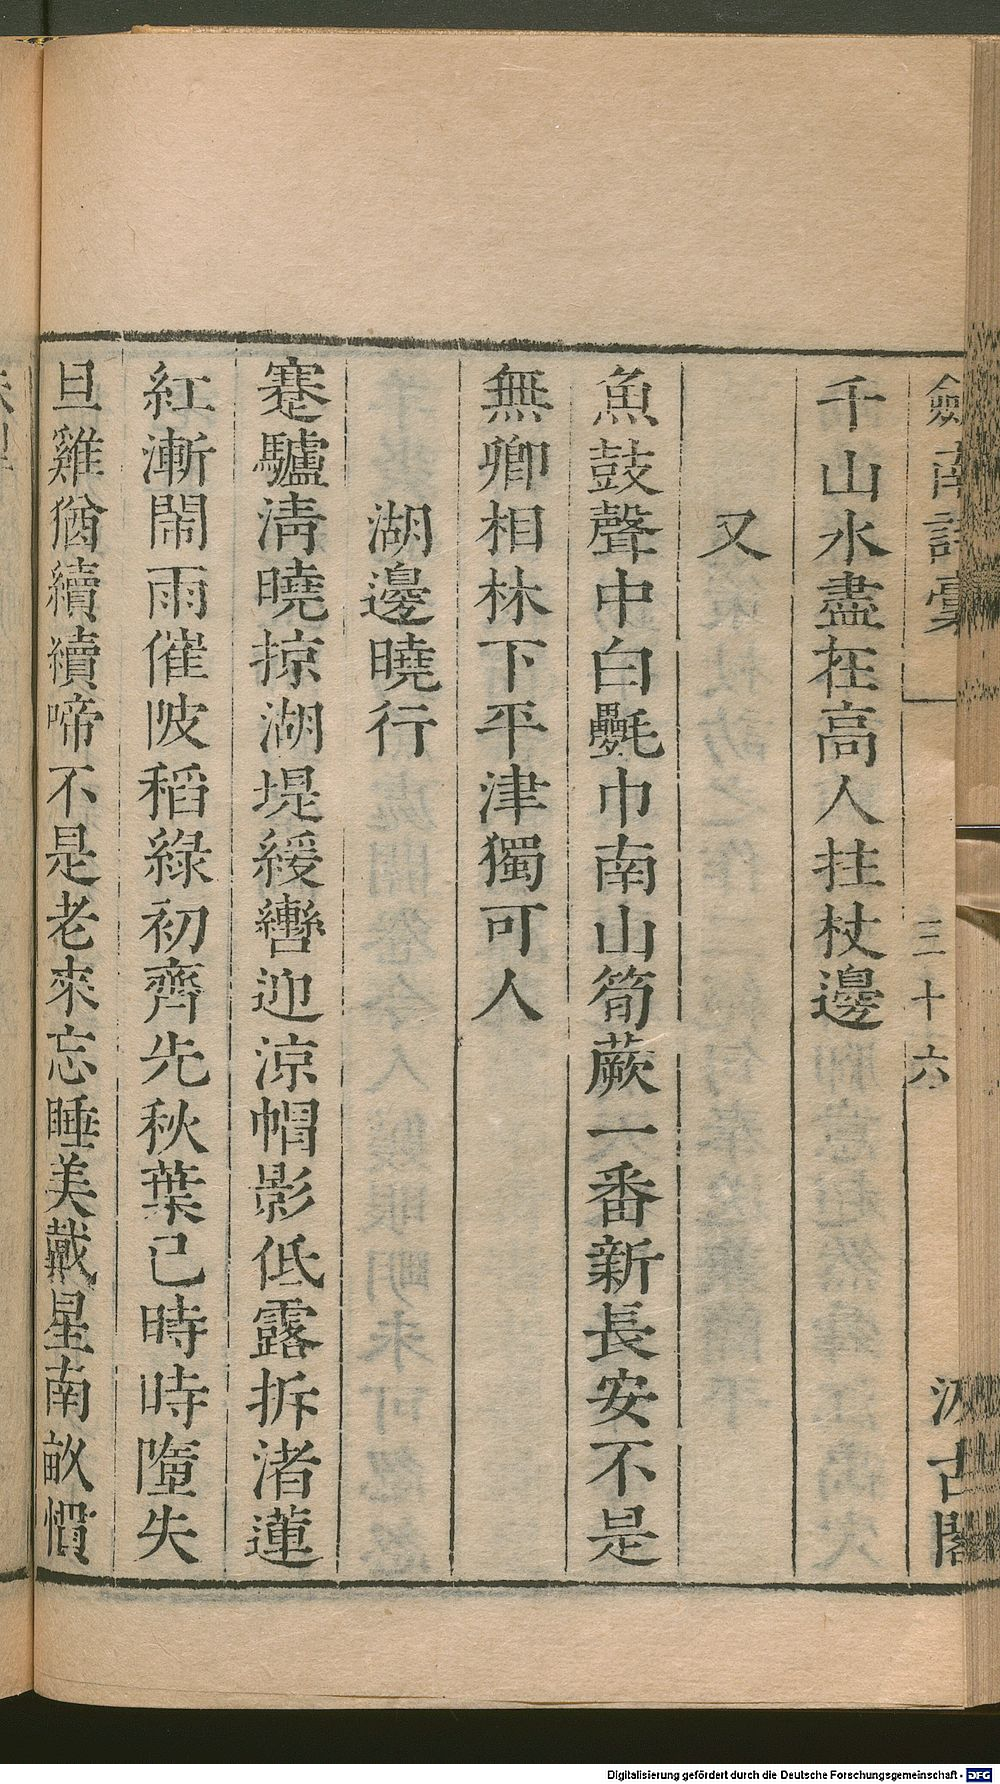 劍南詩稾
三十六
汲古閣
千山水盡在高人拄杖邊
又
魚鼓聲中白㲲巾南山筍蕨一番新長安不是
無卿相林下平津獨可人
湖邊曉行
蹇驢淸曉掠湖堤緩轡迎涼帽影低露拆渚蓮
紅漸鬧雨催陂稻綠初齊先秋葉已時時墮失
旦雞猶續續啼不是老來忘睡美戴星南畝慣
Digitalisierung gefördert durch die Deutsche Forschungsgemeinschaft - DFG